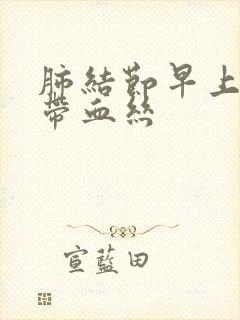 肺結節早上
帶血絲
宣藍田